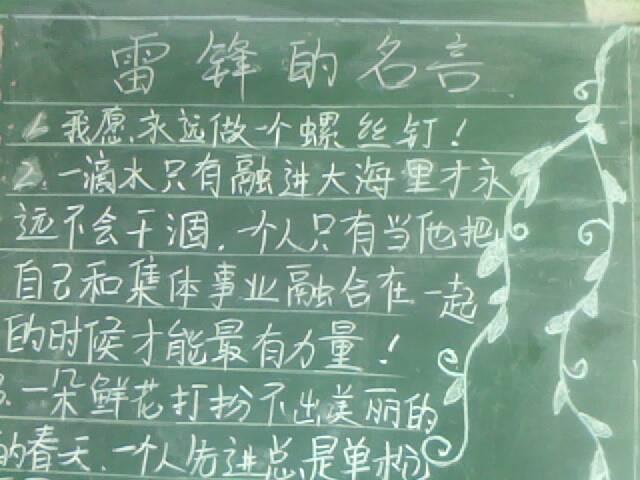 雷锋的名言
1. 我愿永远做一个螺丝钉！
2. 一滴水只有融进大海里才永
远不会干涸，一个人只有当他把
自己和集体事业融合在一起
的时候才能最有力量！
3. 一朵鲜花打扮不出美丽的
的春天、一个人先进总是单